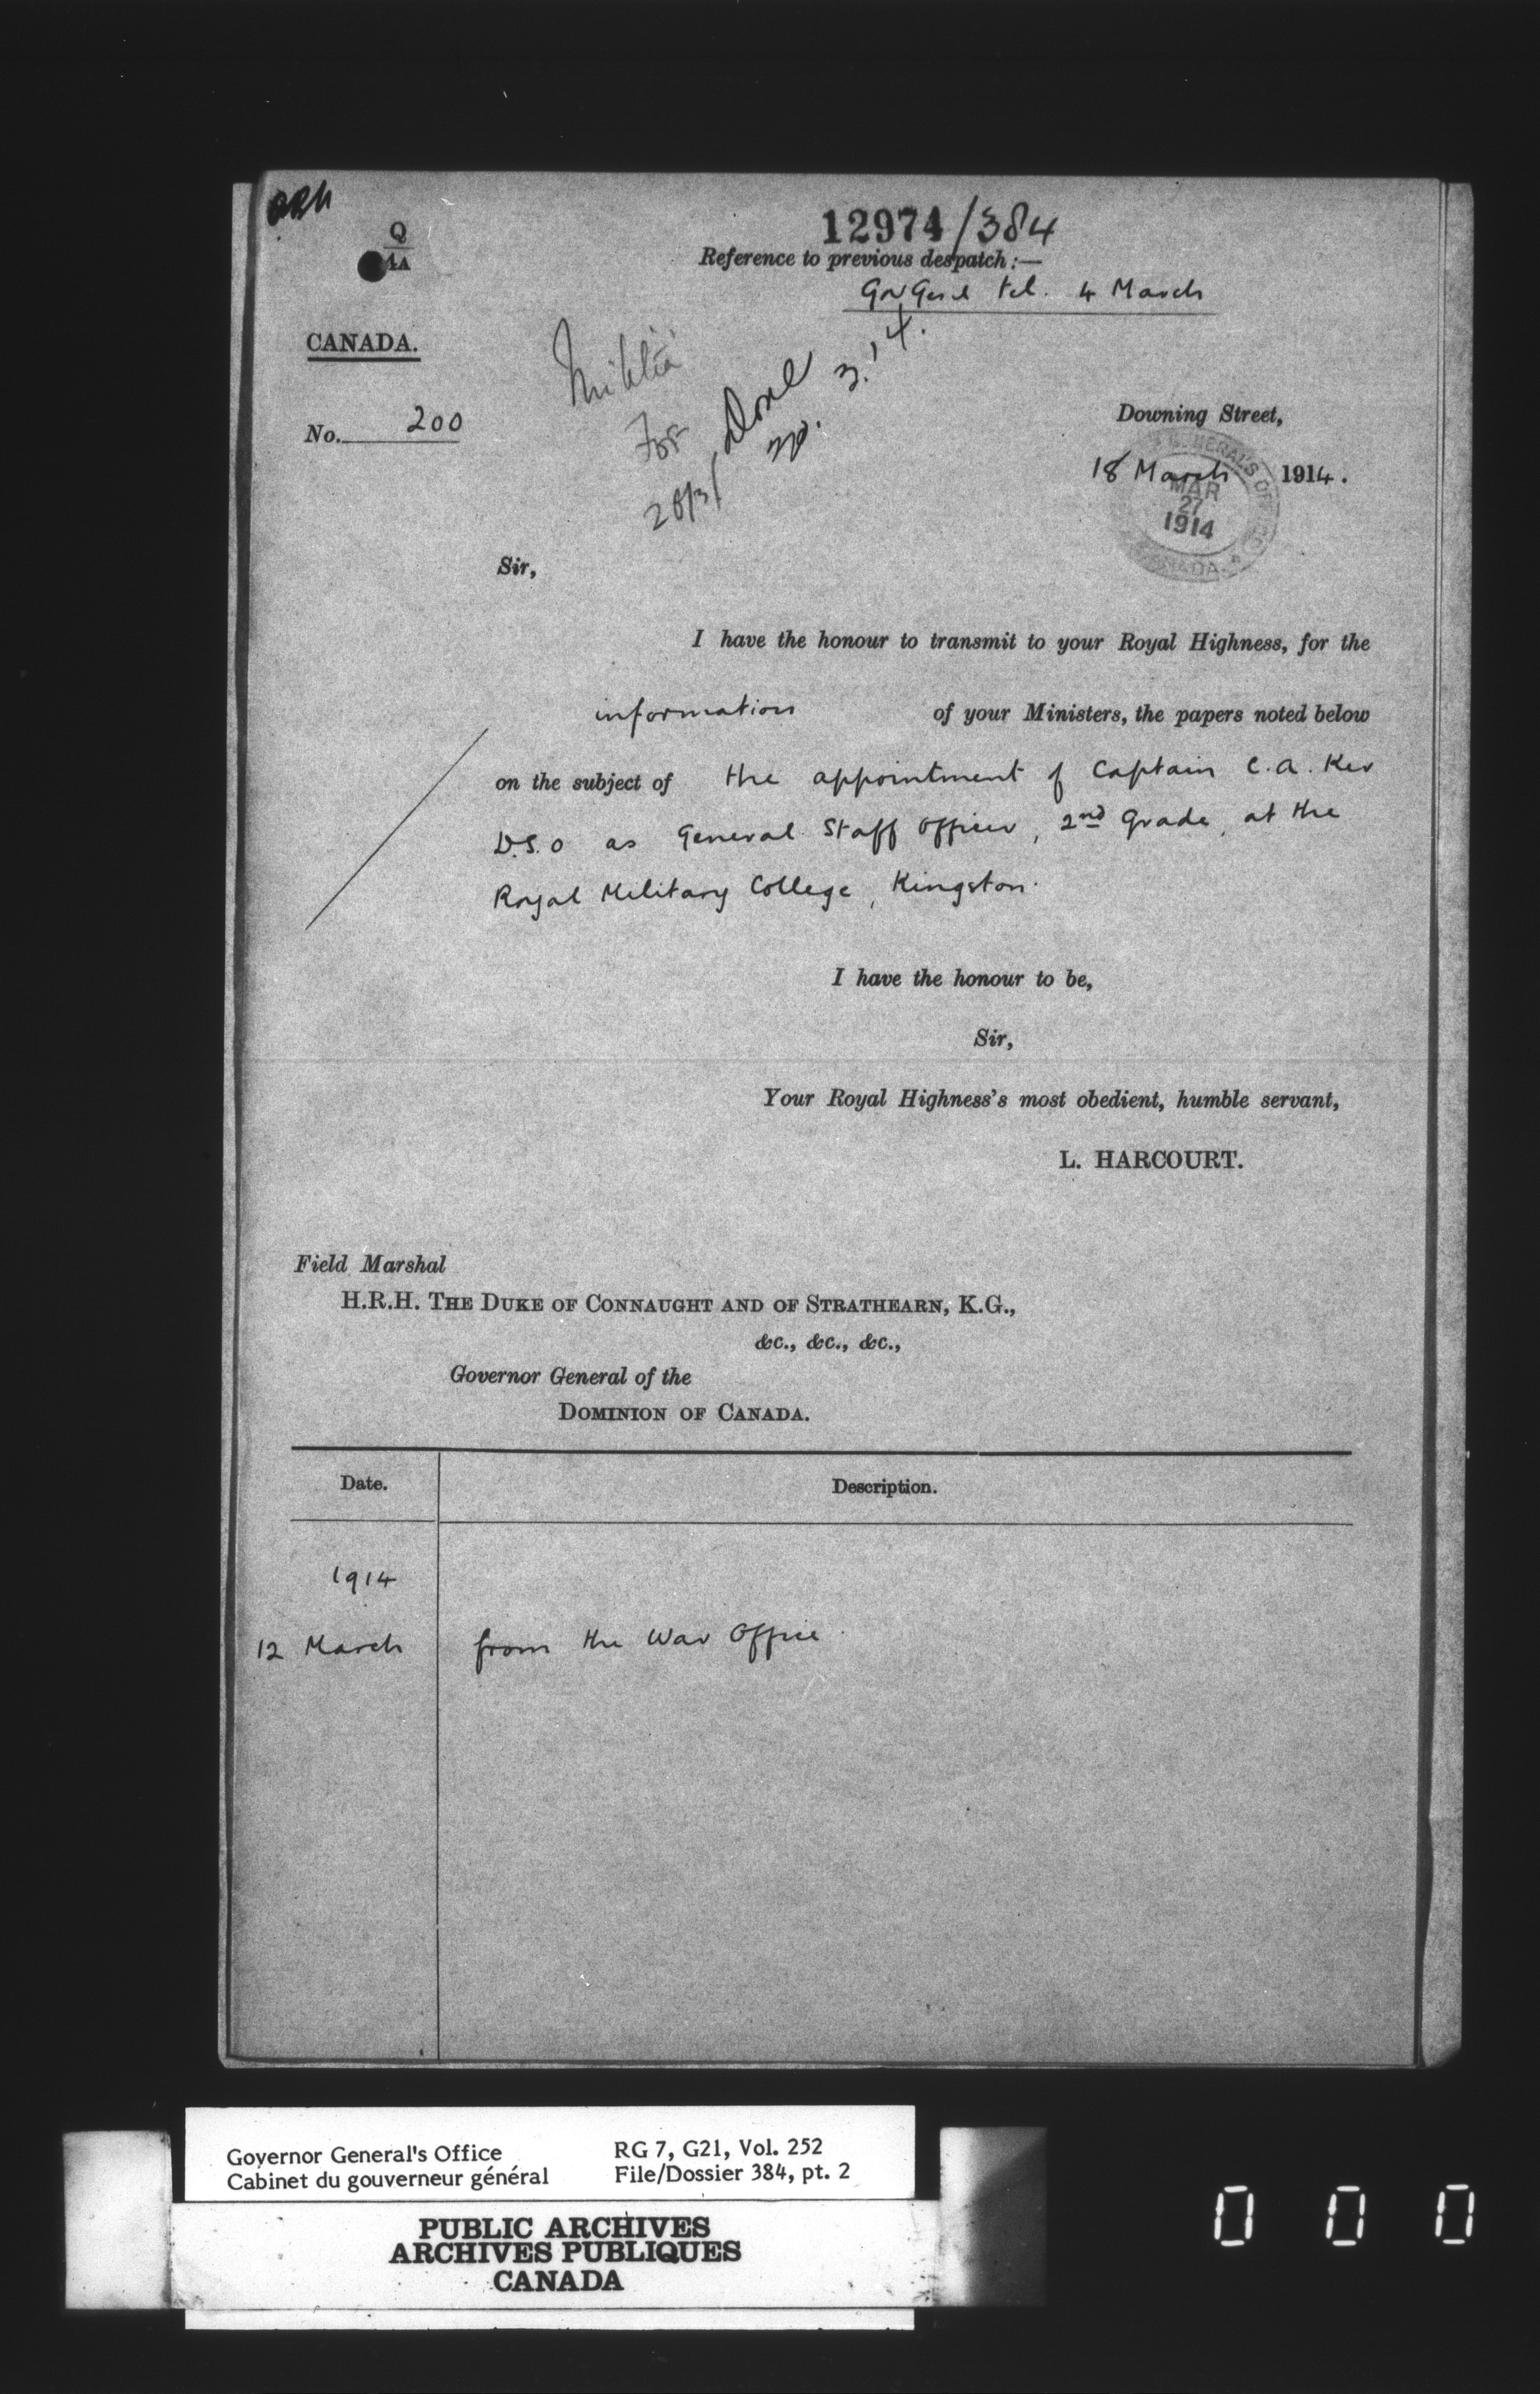 Q
1A
12974/384
Reference to previous despatch :—
Gov Genl tel. 4 March
CANADA.
Militia
For
28/3/
Done
30. 3. '14.
No. 200
Downing Street,
18 March 1914.
GENERAL'S
MAR
27
1914
CANADA
Sir,
I have the honour to transmit to your Royal Highness, for the
information of your Ministers, the papers noted below
on the subject of the appointment of Captain C.A. Ker
D.S.O as General Staff Officer, 2nd Grade, at the
Royal Military College, Kingston.
I have the honour to be,
Sir,
Your Royal Highness's most obedient, humble servant,
L. HARCOURT.
Field Marshal
H.R.H. THE DUKE OF CONNAUGHT AND OF STRATHEARN, K.G.,
&c., &c., &c.,
Governor General of the
DOMINION OF CANADA.
Date. Description.
1914
12 March from the War Office.
Governor General's Office RG 7, G21, Vol. 252
Cabinet du gouverneur général File/Dossier 384, pt. 2
PUBLIC ARCHIVES
ARCHIVES PUBLIQUES
CANADA
0 0 0